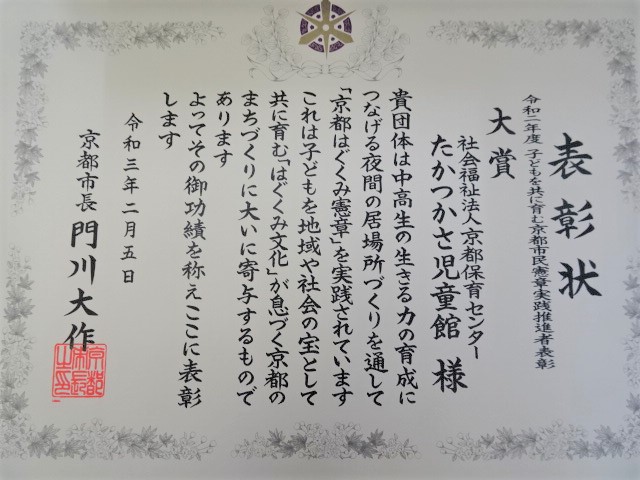 表彰状
令和二年度 子どもを共に育む京都市民憲章実践推進者表彰
大賞
社会福祉法人京都保育センター
たかつかさ児童館 様
貴団体は中高生の生きる力の育成に
つなげる夜間の居場所づくりを通して
「京都はぐくみ憲章」を実践されています
これは子どもを地域や社会の宝として
共に育む「はぐくみ文化」が息づく京都の
まちづくりに大いに寄与するもので
あります
よってその御功績を称えここに表彰
します
令和三年二月五日
京都市長 門川大作
京都市長之印